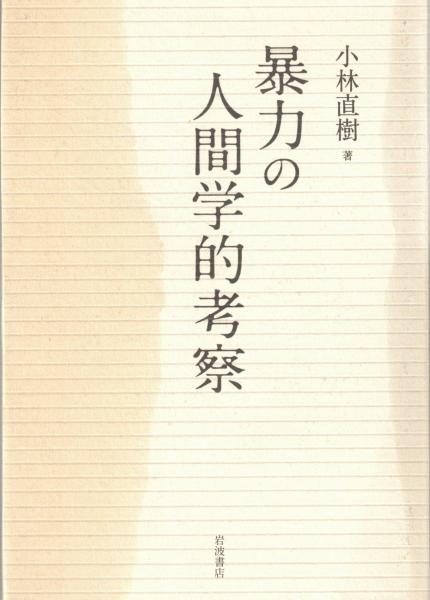 小林直樹 著
暴力の
人間学的考察
岩波書店